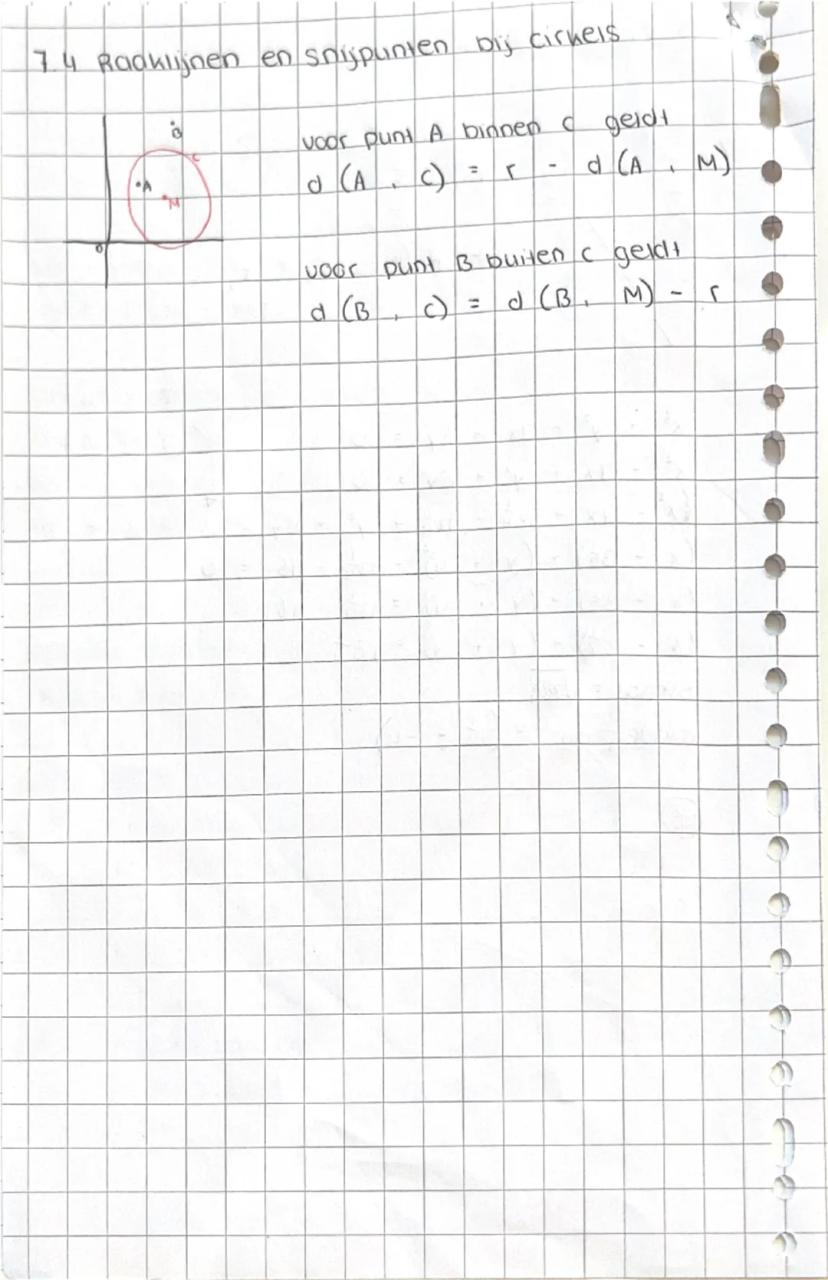 7.4 Raaklijnen en snijpunten bij cirkels
B
c
A
M
O
voor punt A binnen c geldt
d (A, c) = r - d (A, M)
voor punt B buiten c geldt
d (B, c) = d (B, M) - r